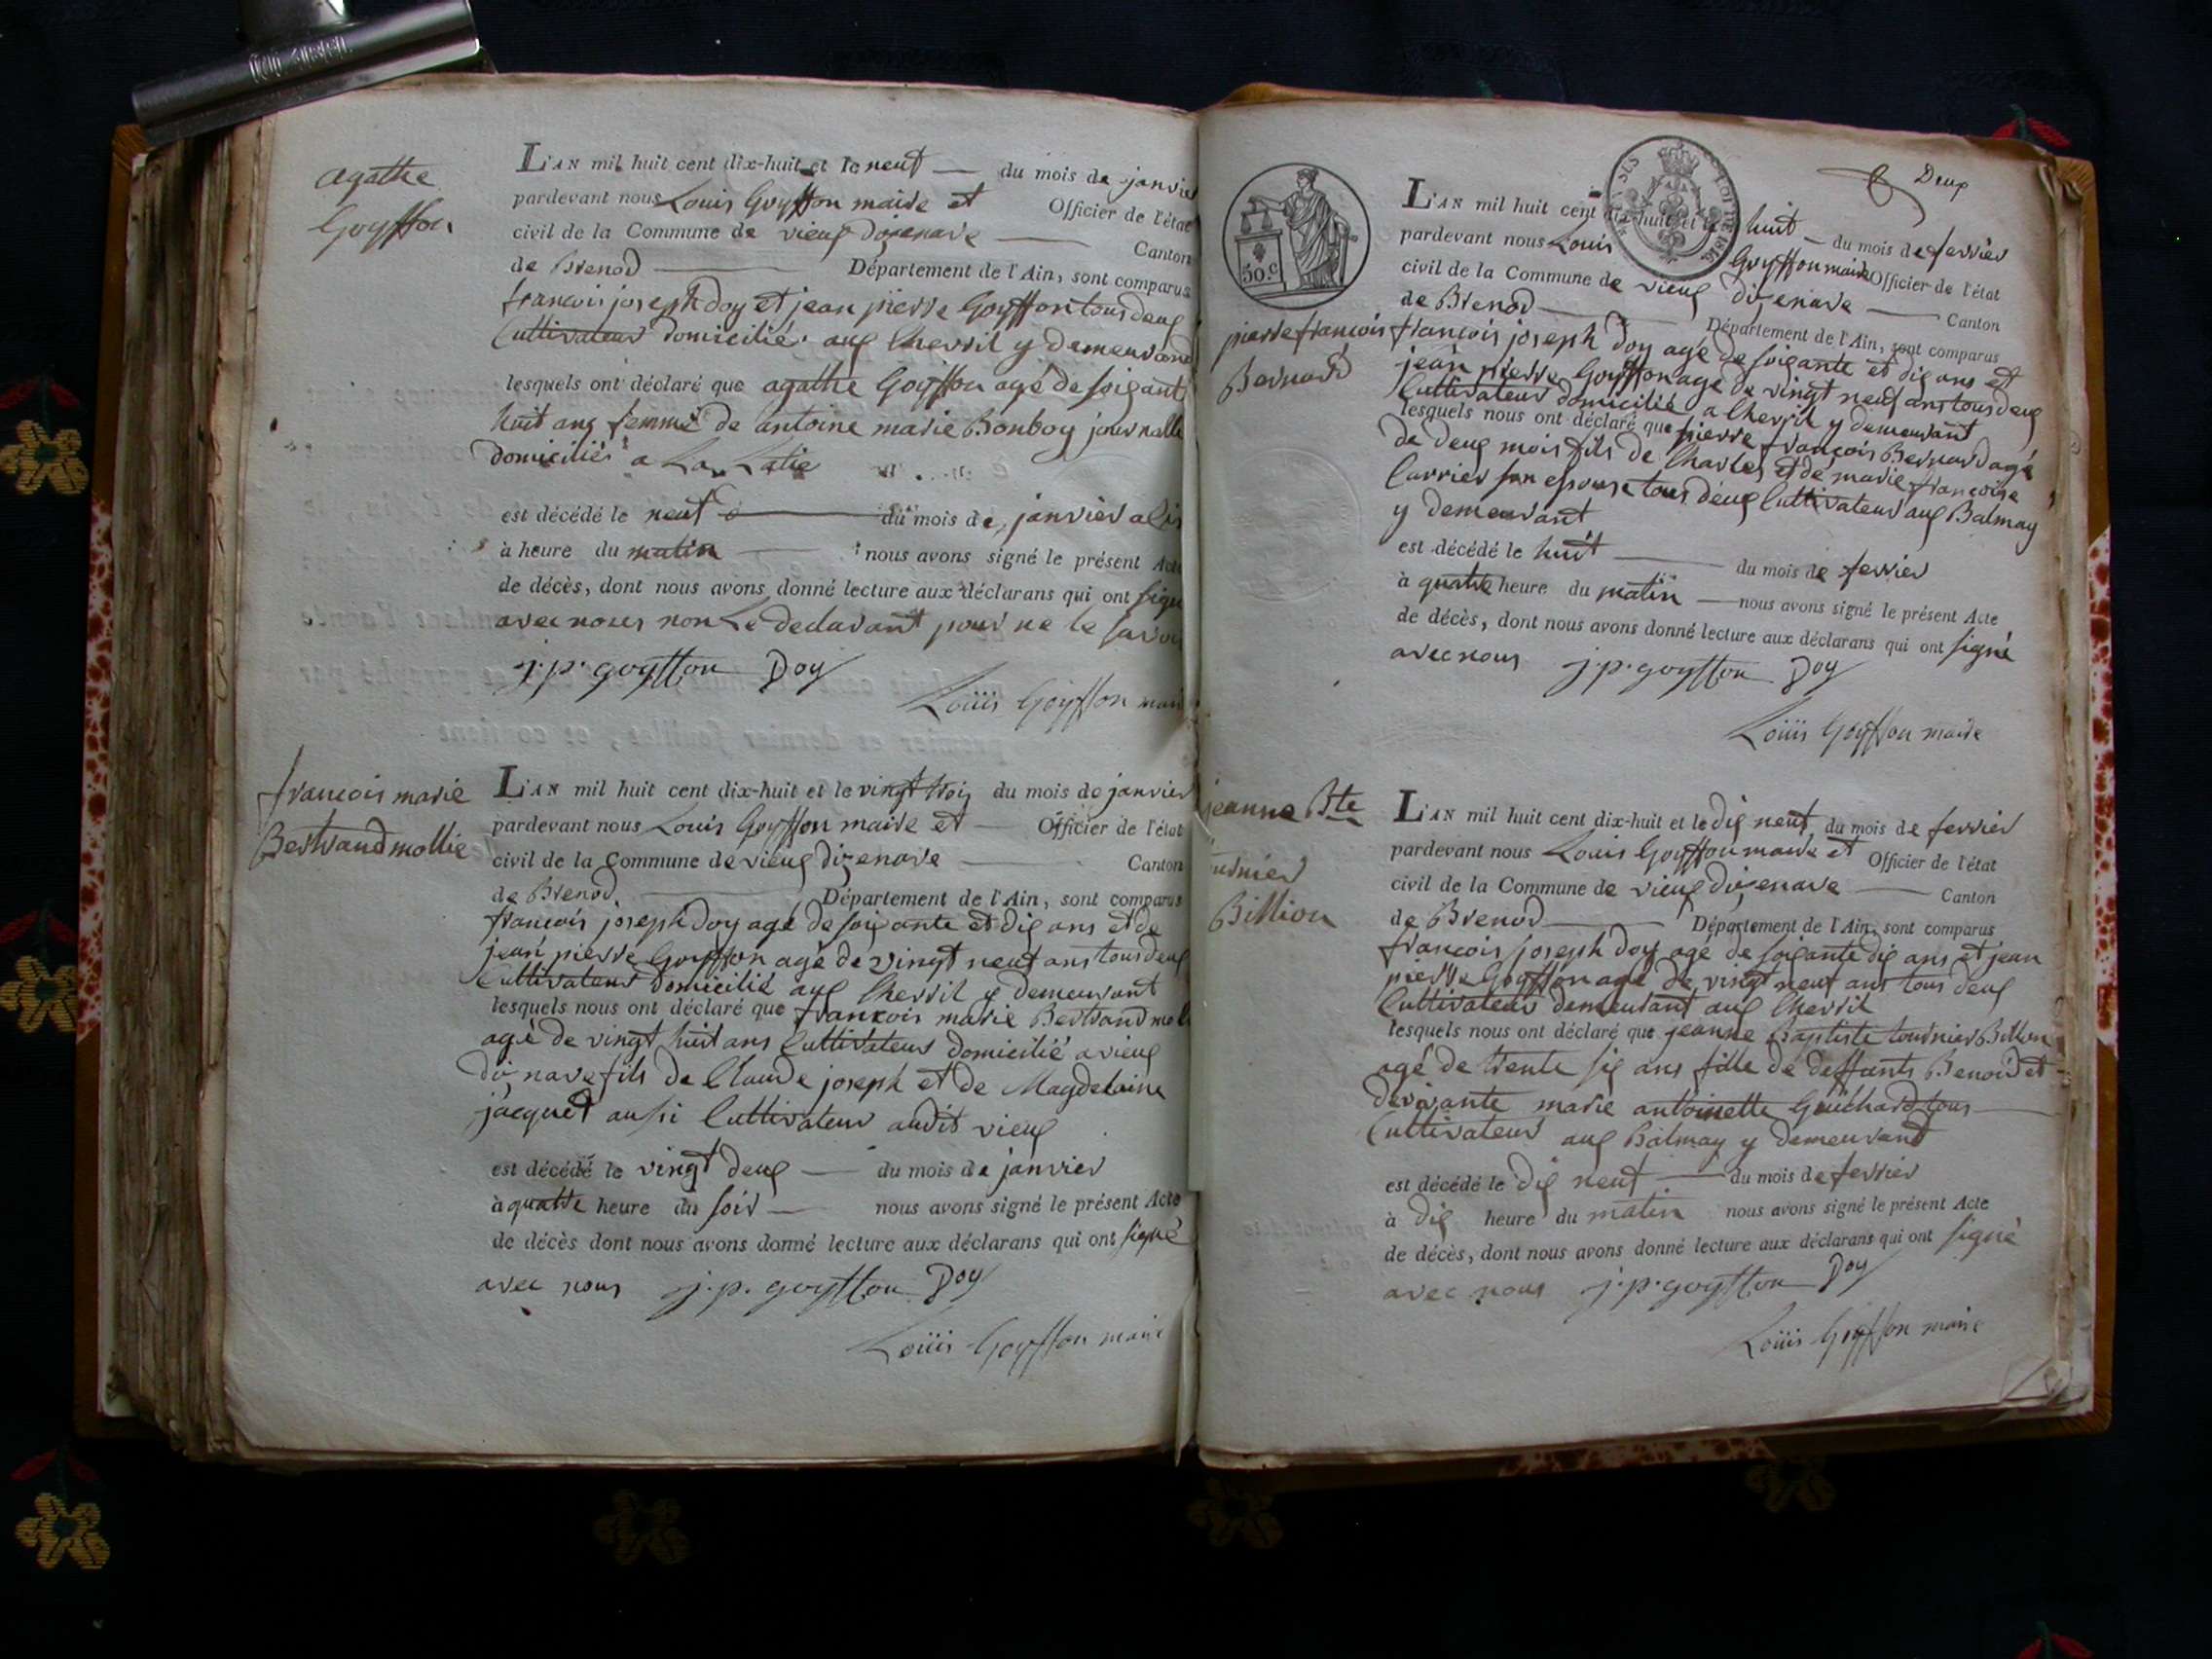 agathe
Goyffon
L'AN mil huit cent dix-huit et le neuf du mois de janvier
pardevant nous Louis Goyffon maire et Officier de l'état
civil de la Commune de vieux dizenave Canton
de Brenod Département de l'Ain, sont comparus
francois joseph doy et jean pierre Goyffon tous deux
Cultivateur domicilié aux Cherril y demeurand
lesquels ont déclaré que agathe Goyffon agé de soixant
huit ans femme de antoine marie Bonboy journalie
domicilié a La
est décédé le neuf du mois de janvier a
à heure du matin nous avons signé le présent Acte
de décès, dont nous avons donné lecture aux déclarans qui ont signe
avec nous non Le declarant pour ne le savoir
j. p. goyffon Doy
Loüis Goyffon maire
francois marie
Bertrand mollie
L'AN mil huit cent dix-huit et le vingt trois du mois de janvier
pardevant nous Louis Goyffon maire et Officier de l'état
civil de la Commune de vieux dizenave Canton
de Brenod Département de l'Ain, sont comparus
francois joseph doy agé de soixante et dix ans et de
jean pierre Goyffon agé de vingt neuf ans tous deux
Cultivateur domicilié aux Cherril y demeurant
lesquels nous ont déclaré que francois marie Bertrand mol
agé de vingt huit ans Cultivateur domicilié a vieux
diznave fils de Claude joseph et de Magdelaine
jacquet aussi Cultivateur audit vieux
est décédé le vingt deux du mois de janvier
à quatre heure du soir nous avons signé le présent Acte
de décès dont nous avons donné lecture aux déclarans qui ont signé
avec nous j. p. goyffon Doy
Loüis Goyffon maire
Deux
50.c
LOI DE 1816
L'AN mil huit cent dix-huit et le huit du mois de fevrier
pardevant nous Louis Goyffon maire Officier de l'état
civil de la Commune de vieux dizenave Canton
de Brenod Département de l'Ain, sont comparus
pierre francois
Bernard
francois joseph doy agé de soixante et dix ans et
jean pierre Goyffon agé de vingt neuf ans tous deux
Cultivateur domicilié a Cherril y demeurant
lesquels nous ont déclaré que pierre francois Bernard agé
de deux mois fils de Charles et de marie francoise
Carrier son epouse tous deux Cultivateur aux Balmay
y demeurant
est décédé le huit du mois de fevrier
à quatre heure du matin nous avons signé le présent Acte
de décès, dont nous avons donné lecture aux déclarans qui ont signé
avec nous j. p. goyffon Doy
Loüis Goyffon maire
jeanne Bte
Billion
L'AN mil huit cent dix-huit et le dix neuf du mois de fevrier
pardevant nous Louis Goyffon maire et Officier de l'état
civil de la Commune de vieux dizenave Canton
de Brenod Département de l'Ain, sont comparus
francois joseph doy agé de soixante dix ans et jean
pierre Goyffon agé de vingt neuf ans tous deux
Cultivateur demeurant aux Cherril
lesquels nous ont déclaré que jeanne Baptiste tournier Billion
agé de trente six ans fille de deffunts Benoid et
devivante marie antoinette Guichard tous
Cultivateur aux Balmay y demeurand
est décédé le dix neuf du mois de fevrier
à dix heure du matin nous avons signé le présent Acte
de décès, dont nous avons donné lecture aux déclarans qui ont signé
avec nous j. p. goyffon Doy
Loüis Goyffon maire